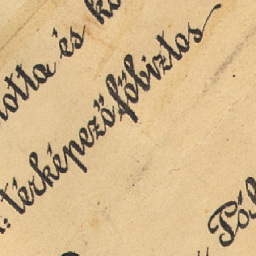 otta és
térképező főbiztos
Pól